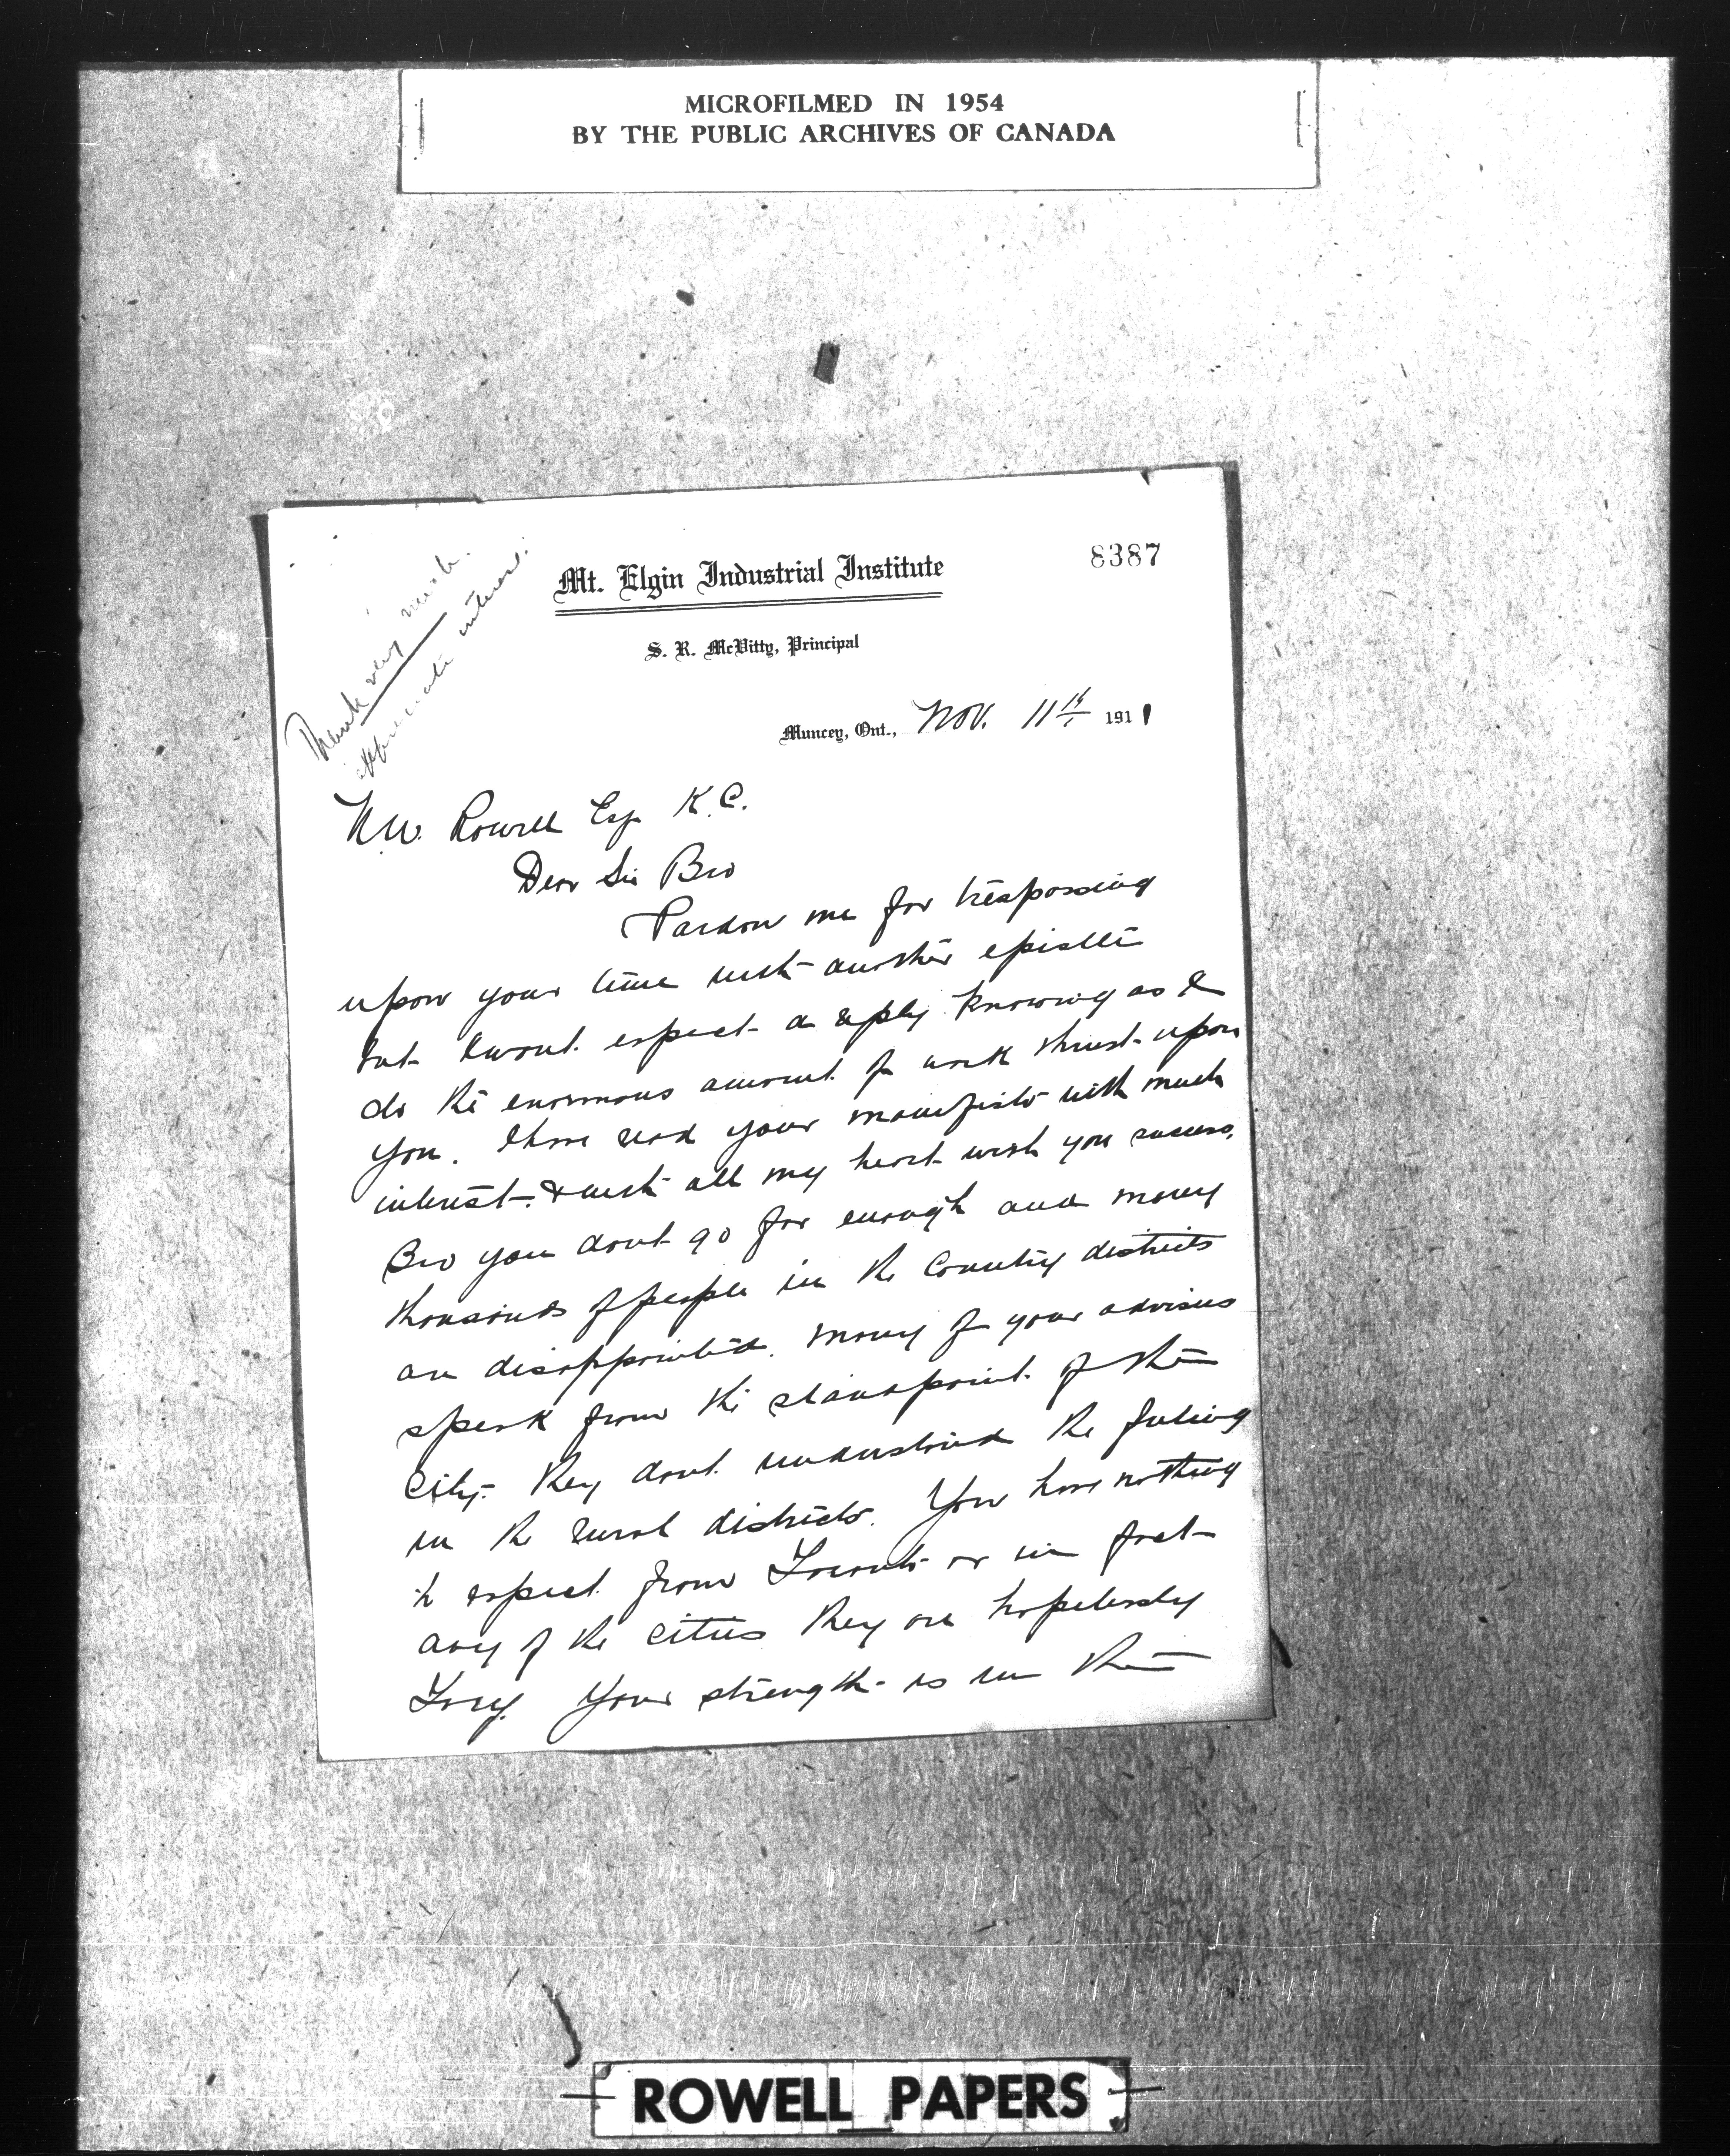 MICROFILMED IN 1954
BY THE PUBLIC ARCHIVES OF CANADA
8387
Thank very much.
appreciate interest.
Mt. Elgin Industrial Institute
S. R. McVitty, Principal
Muncey, Ont., Nov. 11th 1911
N.W. Rowell Esq K.C.
Dear Sir Bro
Pardon me for trespassing
upon your time with another epistle
but I wont expect a reply knowing as I
do the enormous amount of work thrust upon
you. I have read your manifesto with much
interest & with all my heart wish you success.
Bro you dont go far enough and many
thousands of people in the Country districts
are disappointed. Many of your advisers
speak from the standpoint of the
City. They dont understand the feeling
in the rural districts. You have nothing
to expect from Toronto or in fact
any of the cities they are hopelessly
Tory. Your strength is in the
ROWELL PAPERS